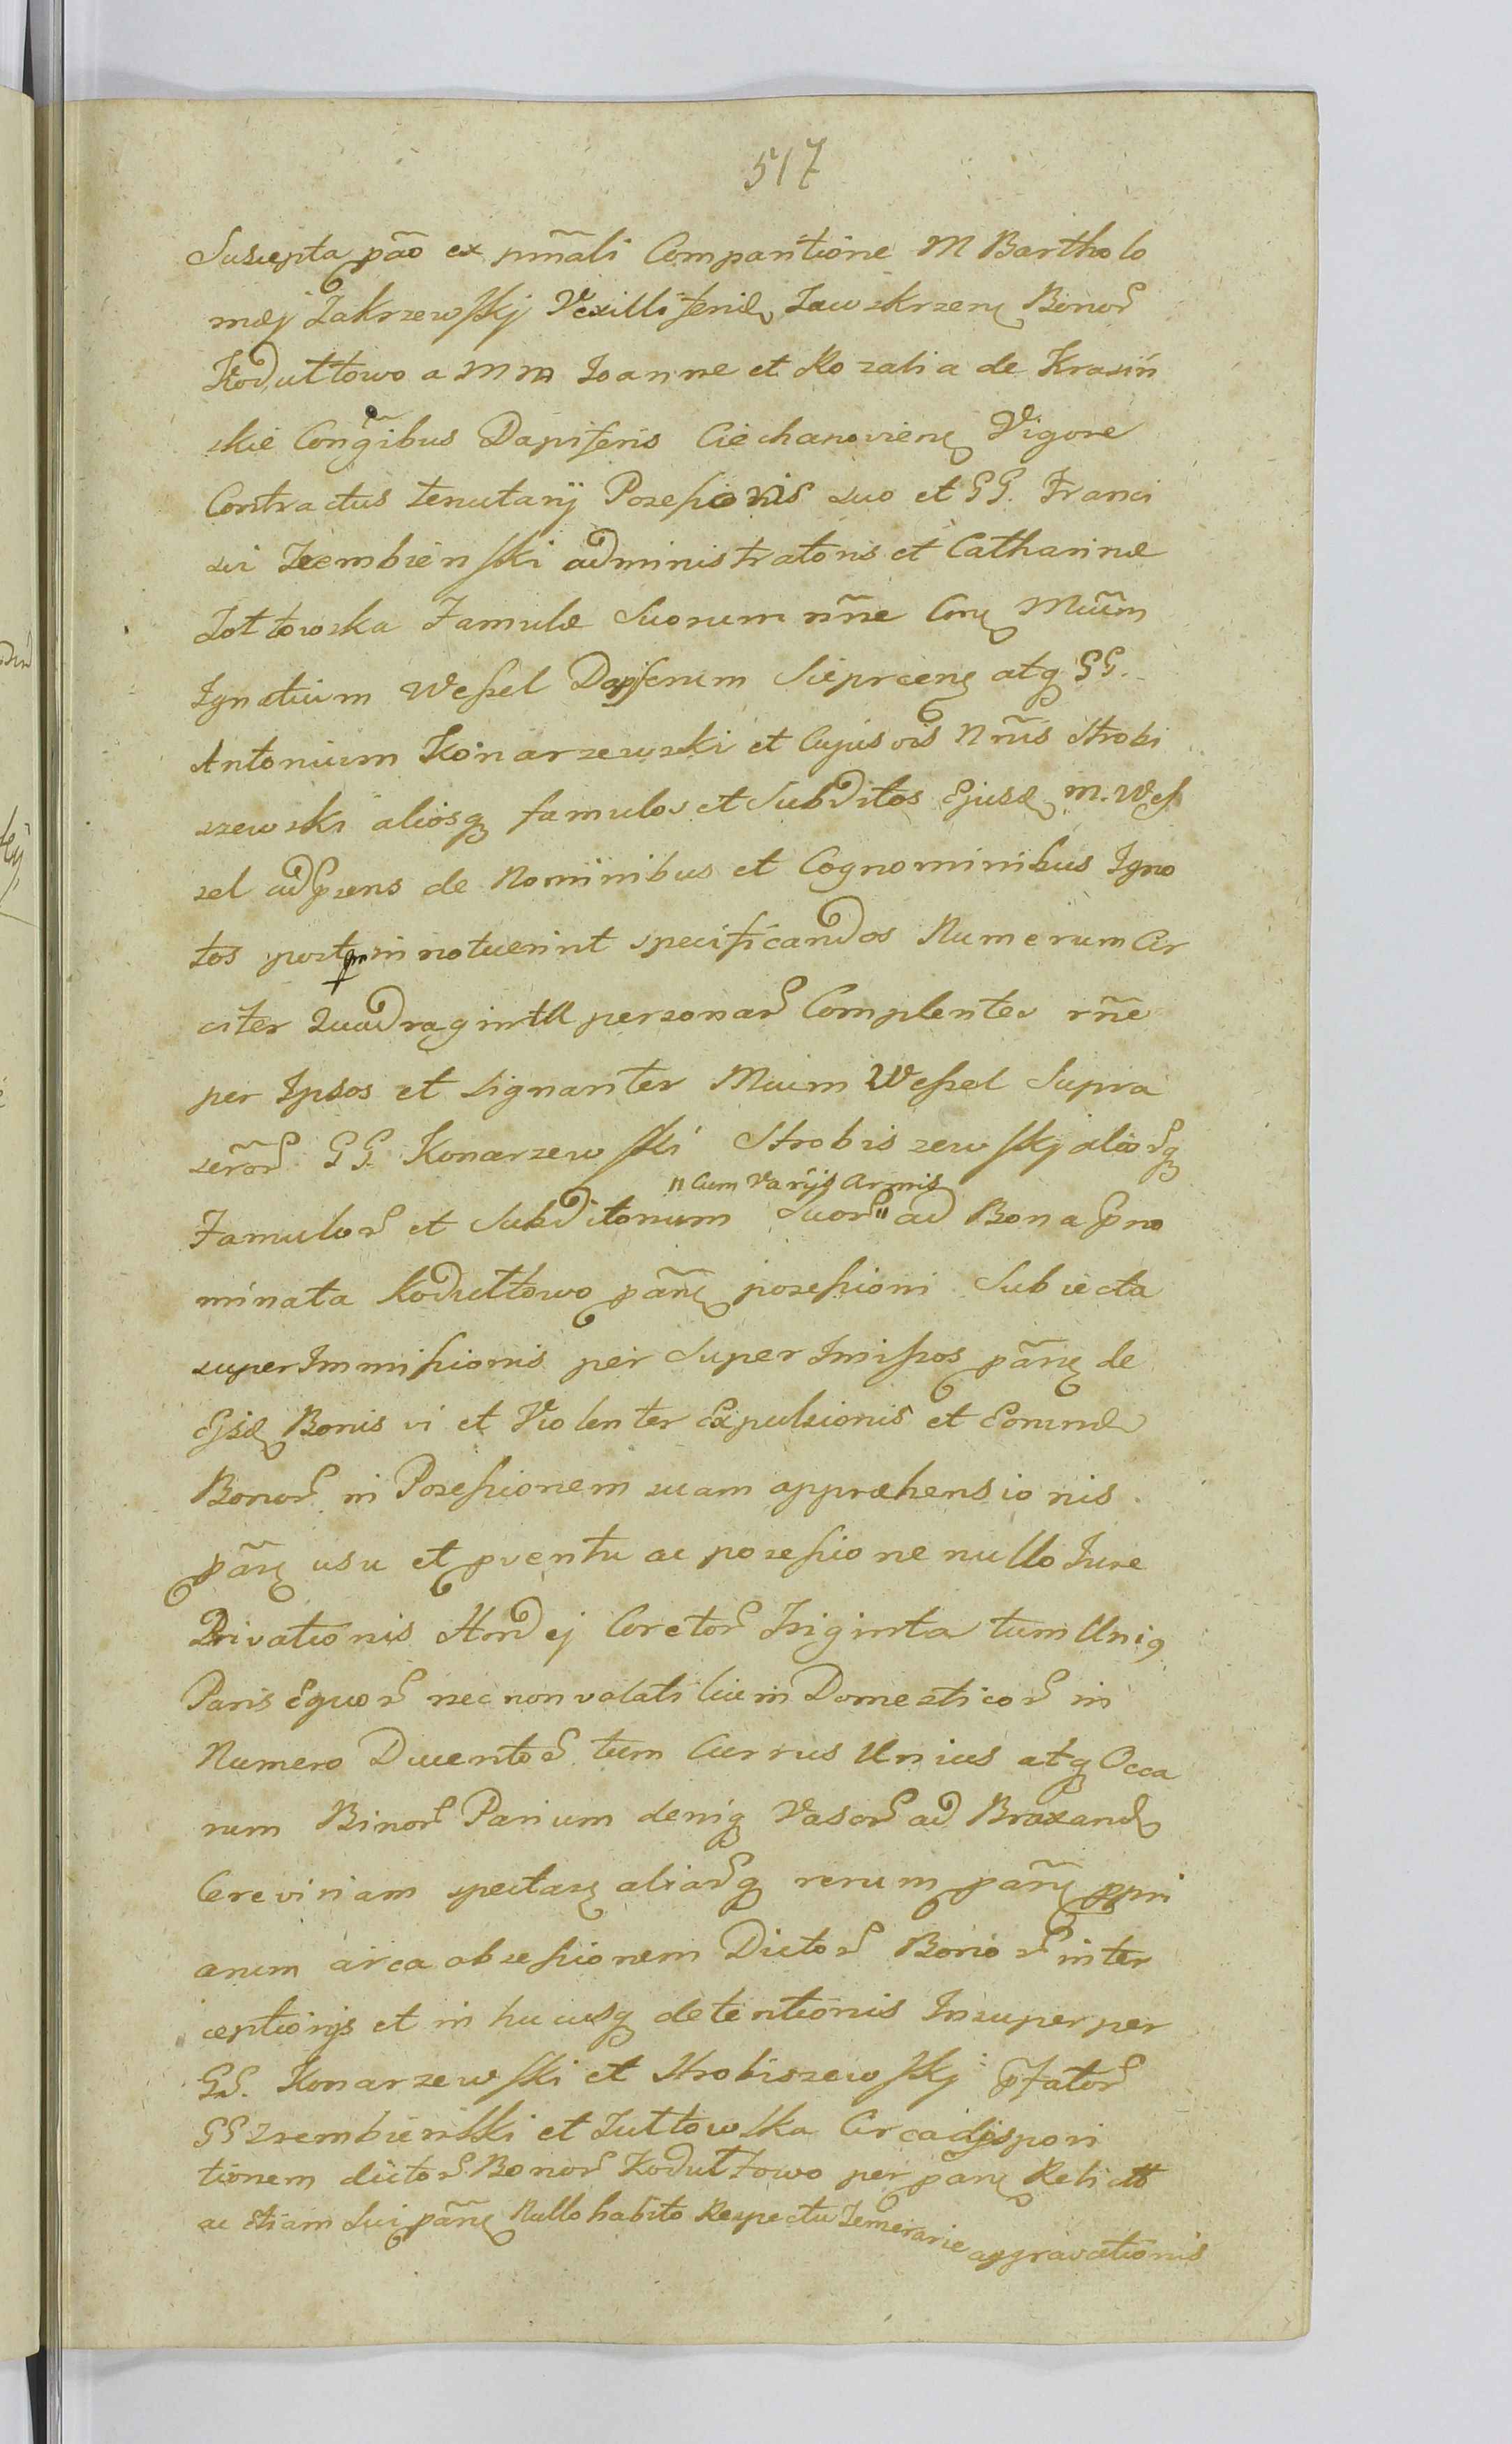 517
Suscepta pão ex pm̃ali Comparitione M Bartholo
mæj Zakrzewskj Vexilliferidæ Zawskrzenę Bonor̃
Koduttowo a Mm Joanne et Rozalia de Krasiń
skie Congibus Dapiferis Ciechanovienę Vigore
Contractus tenutarij Posessionis suo et GG. Franci
sci Trembienski administratoris et Catharinæ
Zottowska Famulæ Suorum nñe Conę Mũum
Ignatium Wessel Dapiferum Sieprcenę atq GG.
Antonium Konarzewski et Cujusvis Nñis Strobi
szewski aliosq famulos et Subditos Ejusdę M. Wes
sel ad psens de Nominibus et Cognominibus Igno
tos postqm innotuerint specificandos Numerum Cir
citer Quadraginta personar̃ Complentes rñe
per Ipsos et signanter Mum Wessel Supra
serõr GG. Konarzewski Strobiszewskj alior̃q
" Cum Varijs Armis
Famulor̃ et Subditorum Suor̃ " ad Bona pno
minata Koduttowo pãnę possessioni Subiecta
super Immissionis per Super Imissos pãnę de
Ejsdę Bonis vi et Violenter Expulsionis et Eorund
Bonor̃ in Posessionem suam appræhensionis
pãnę usu et pventu ac posessione nullo Jure
Privationis Hordej Coretor̃ Triginta tum Uniq
Paris Equor̃ nec non volatilium Domesticor̃ in
Numero Ducentor̃ tum Currus Unius atq Occa
rum Binor̃ Parium deniq Vasor̃ ad Braxand
Cerevisiam spectanę aliar̃q rerum pãnę ppri
arum circa obsessionem Dictor̃ Bonor̃ inter
ceptionis et in hucusq detentionis Insuper per
GG. Konarzewski et Strobiszewskj pfator̃
GG Trembienski et Zuttowska Circa disposi
tionem dictor̃ Bonor̃ Koduttowo per pãnę Relict
ac Etiam Sui pãnę Nullo habito Respectu Temerarie aggravationis